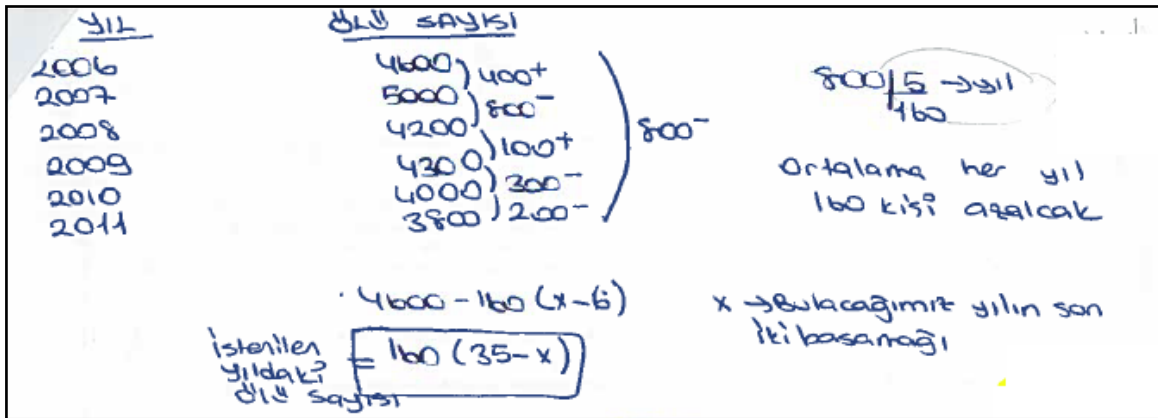 YIL ÖLÜ SAYISI
2006 4600
2007 5000
2008 4200
2009 4300
2010 4000
2011 3800
400+
800-
100+
300-
200-
800-
800 5 → yıl
160
Ortalama her yıl
160 kişi azalcak
4600-160(x-6)
x → Bulacağımız yılın son
iki basamağı
İstenilen
yıldaki
ölü sayısı
= 160(35-x)